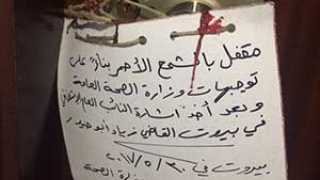 مقفل بالشمع الأحمر بناءً على
توجيهات وزارة الصحة العامة
وبعد أخذ اشارة النائب العام الإستئنافي
في بيروت القاضي زياد أبو حيدر
بيروت في ٣٠/٥/٢٠١٧
وزارة الصحة